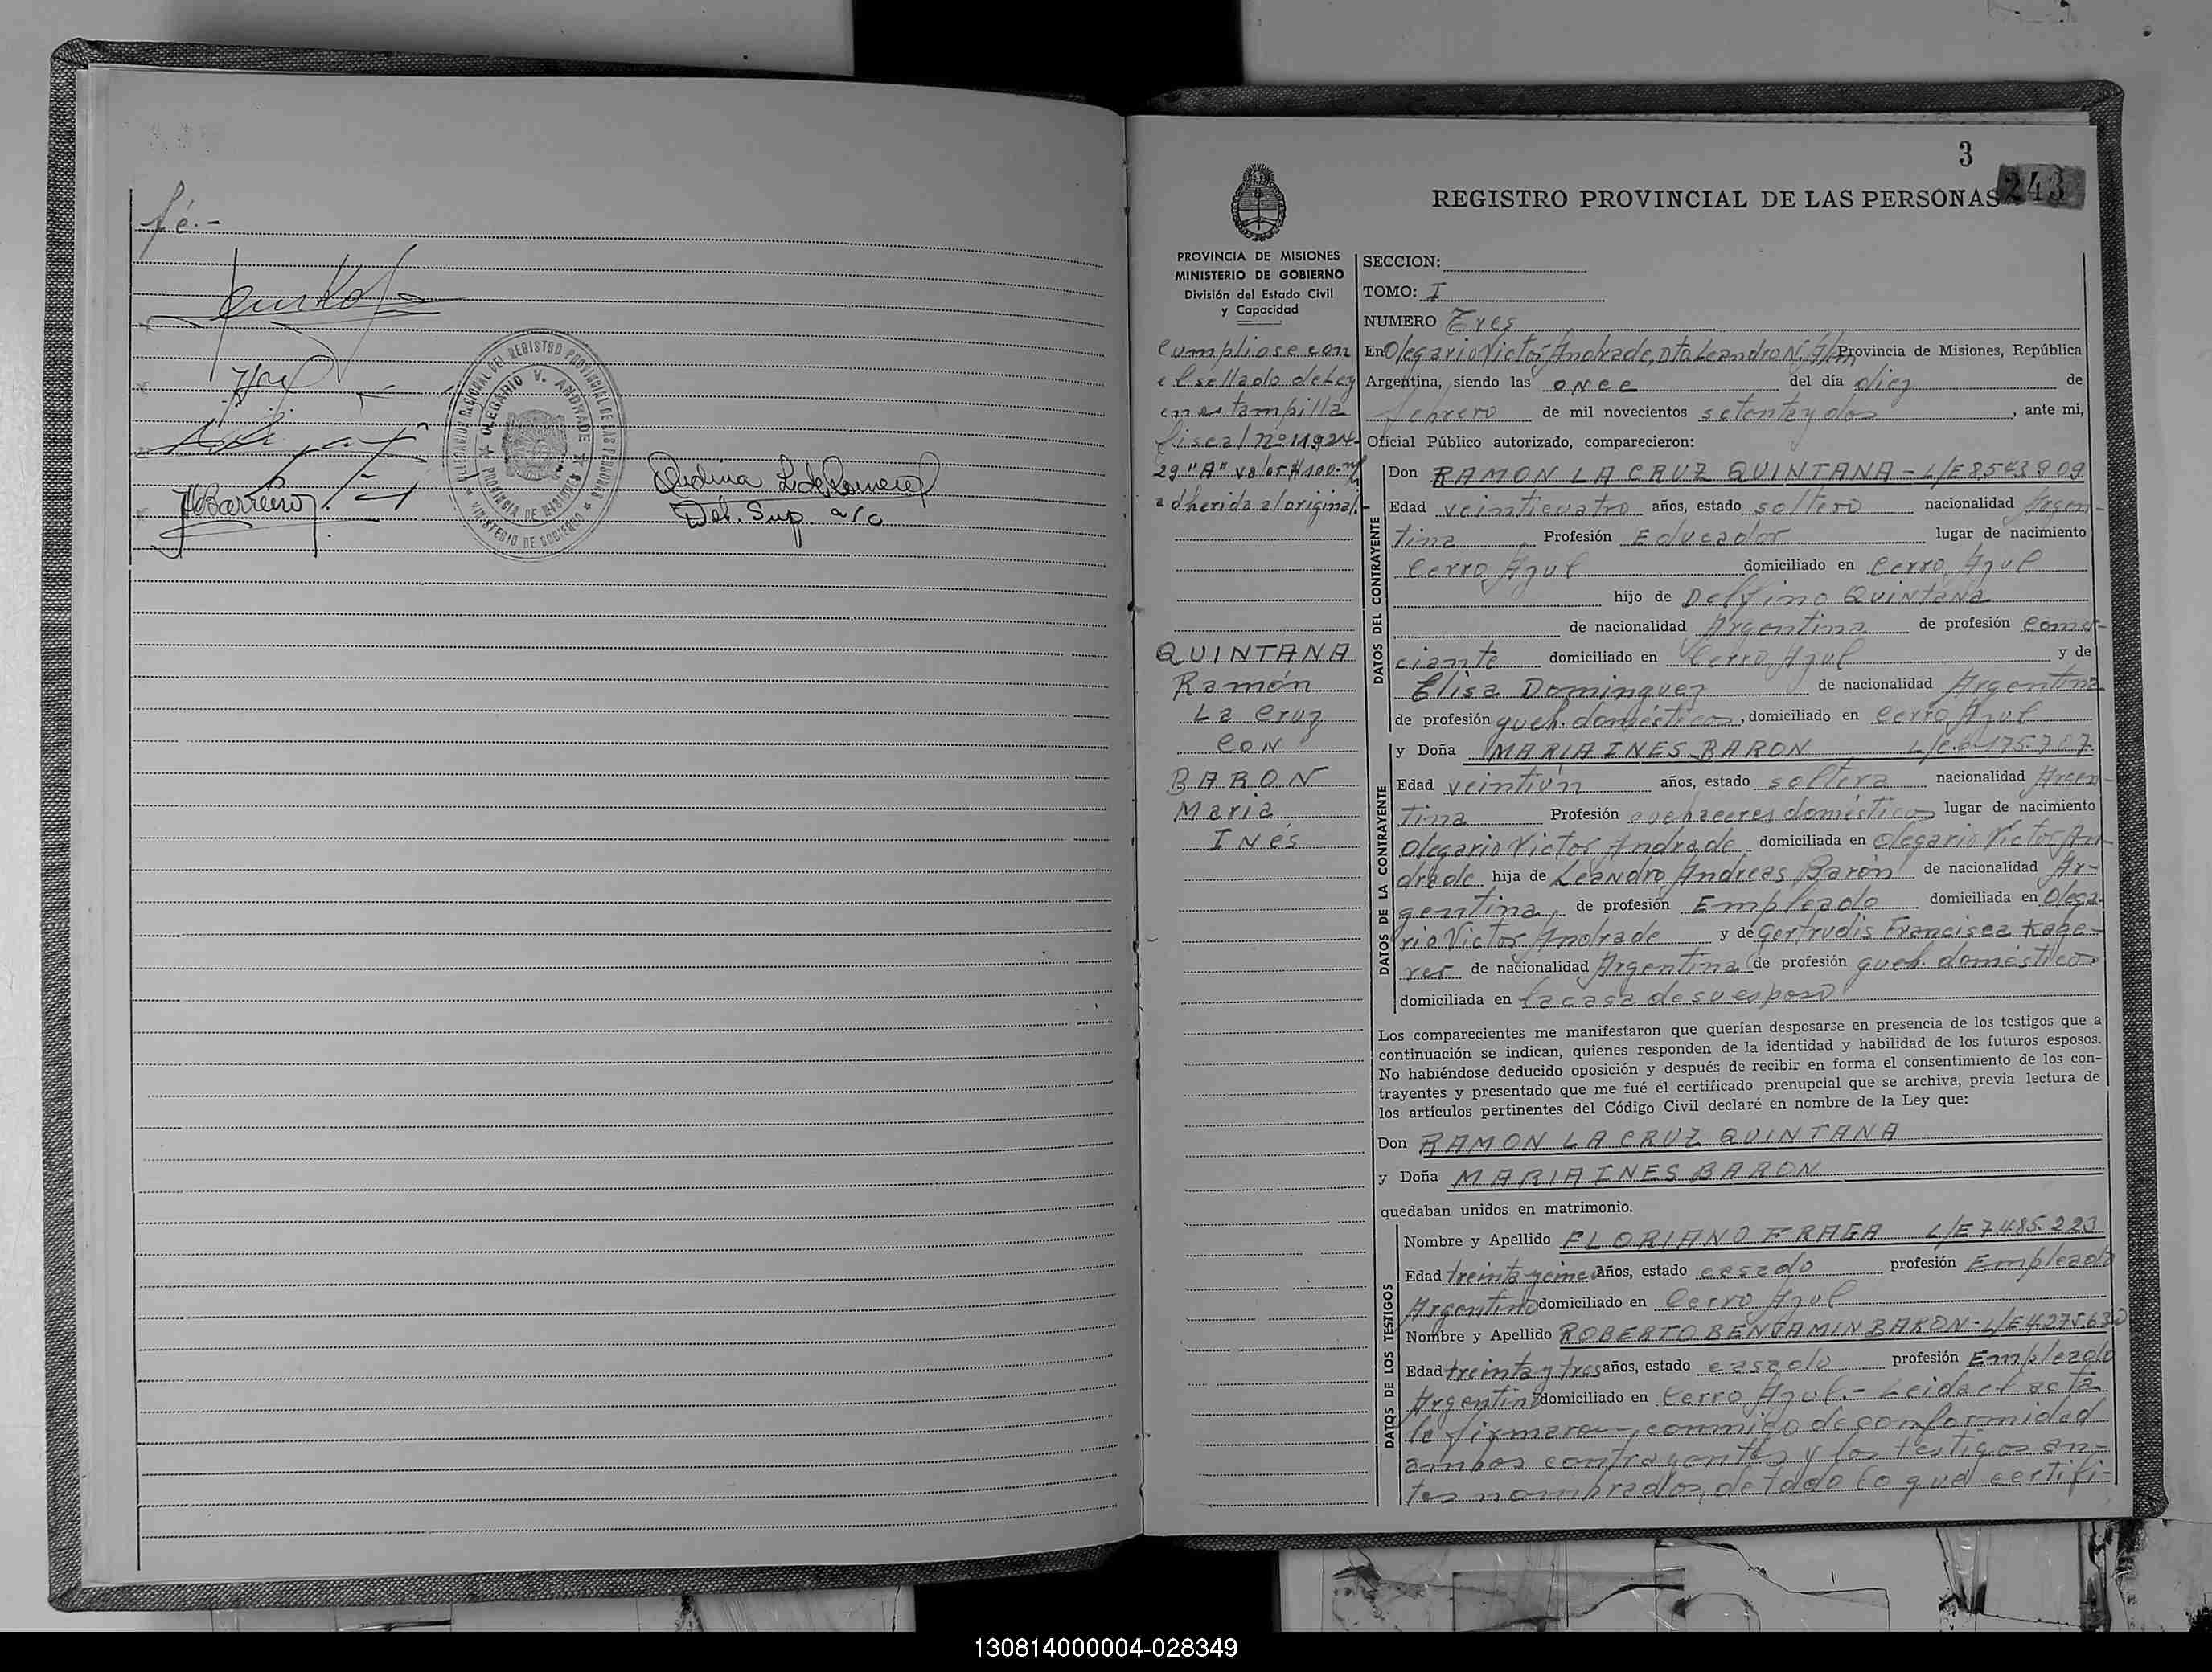 fé.-
DELEGACION REGIONAL DEL REGISTRO PROVINCIAL DE LAS PERSONAS
OLEGARIO V. ANDRADE
PROVINCIA DE MISIONES
MINISTERIO DE GOBIERNO
Del. Sup. a/c
3
243
REGISTRO PROVINCIAL DE LAS PERSONAS
PROVINCIA DE MISIONES
MINISTERIO DE GOBIERNO
División del Estado Civil
y Capacidad
Cumpliose con
el sellado de Ley
en estampilla
fiscal nº 11924
29 "A" valor $ 100.-
adherida al original.-
QUINTANA
Ramón
La Cruz
CON
BARON
Maria
Inés
SECCION:
TOMO: I
NUMERO Tres
En Olegario Victor Andrade, Dto Leandro N. Alem Provincia de Misiones, República
Argentina, siendo las once del día diez de
febrero de mil novecientos setenta y dos, ante mi,
Oficial Público autorizado, comparecieron:
DATOS DEL CONTRAYENTE
Don RAMON LA CRUZ QUINTANA - L/E 8.543.809
Edad veinticuatro años, estado soltero nacionalidad Argen-
tina Profesión Educador lugar de nacimiento
Cerro Azul domiciliado en Cerro Azul
hijo de Delfino Quintana
de nacionalidad Argentina de profesión Comer-
ciante domiciliado en Cerro Azul y de
Elisa Dominguez de nacionalidad Argentina
de profesión queh. domésticos, domiciliado en Cerro Azul
DATOS DE LA CONTRAYENTE
y Doña MARIA INES BARON L/C. 6.175.707
Edad veintiún años, estado soltera nacionalidad Argen-
tina Profesión quehaceres domésticos lugar de nacimiento
Olegario Victor Andrade domiciliada en Olegario Victor An-
drade hija de Leandro Andreas Barón de nacionalidad Ar-
gentina, de profesión Empleado domiciliada en Olega-
rio Victor Andrade y de Gertrudis Francisca Kage-
rer de nacionalidad Argentina de profesión queh. domésticos
domiciliada en la casa de su esposo
Los comparecientes me manifestaron que querían desposarse en presencia de los testigos que a
continuación se indican, quienes responden de la identidad y habilidad de los futuros esposos.
No habiéndose deducido oposición y después de recibir en forma el consentimiento de los con-
trayentes y presentado que me fué el certificado prenupcial que se archiva, previa lectura de
los artículos pertinentes del Código Civil declaré en nombre de la Ley que:
Don RAMON LA CRUZ QUINTANA
y Doña MARIA INES BARON
quedaban unidos en matrimonio.
DATOS DE LOS TESTIGOS
Nombre y Apellido FLORIANO FRAGA L/E 7.485.223
Edad treinta y cinco años, estado casado profesión Empleado
Argentino domiciliado en Cerro Azul
Nombre y Apellido ROBERTO BENJAMIN BARON - L/E 4.275.630
Edad treinta y tres años, estado casado profesión Empleado
Argentino domiciliado en Cerro Azul.- Leida el acta
la firmaron conmigo de conformidad
ambos contrayentes y los testigos an-
tes nombrados, de todo lo que certifi-
130814000004-028349